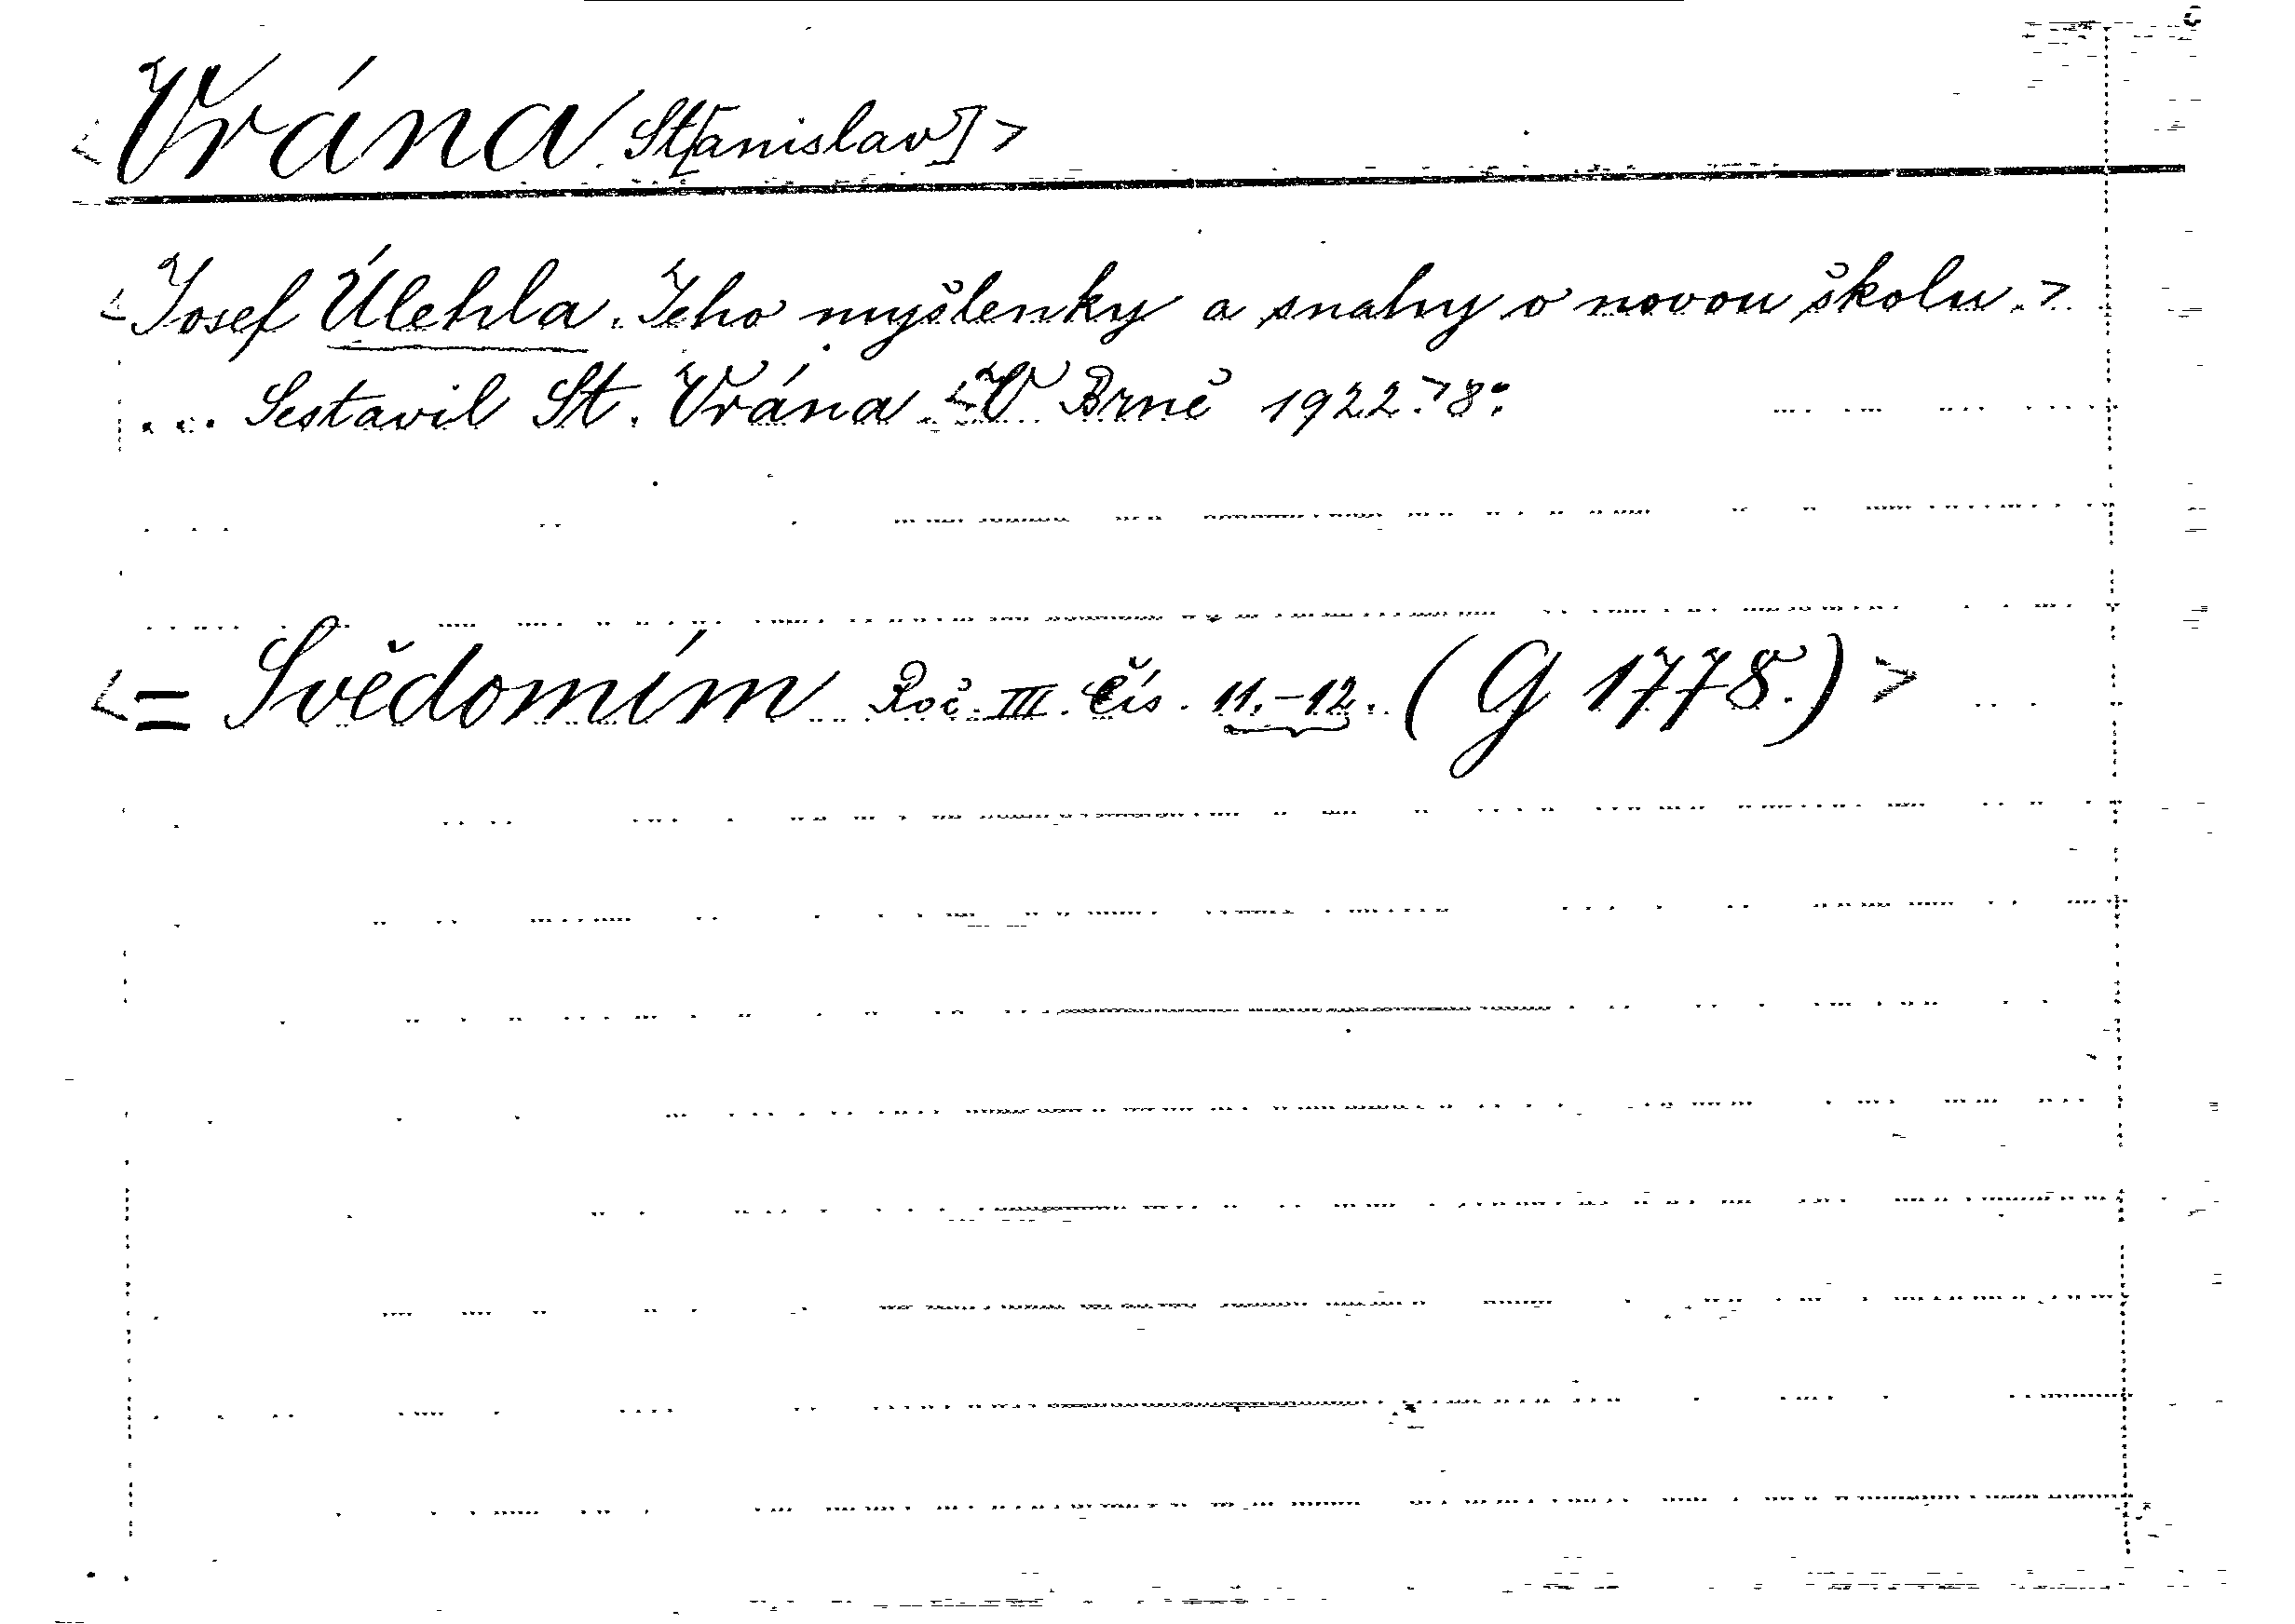 <Vrána St[anislav]>
<Josef Úlehla. Jeho myšlenky a snahy o novou školu.>
... Sestavil St. Vrána <V Brně 1922.> 8°.
<= Svědomím Roč. III. Čís. 11.-12. (G 1778.)>